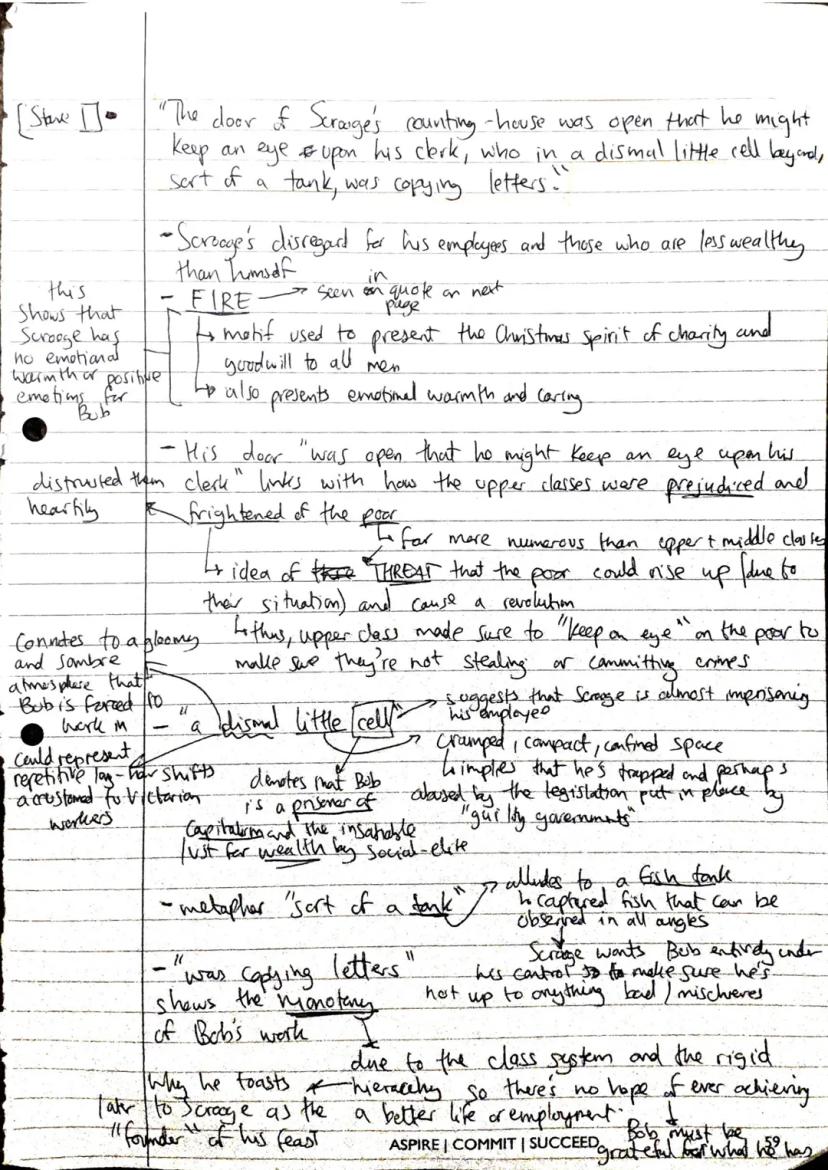 [Stave I] •
"The door of Scrooge's counting-house was open that he might
keep an eye upon his clerk, who in a dismal little cell beyond,
sort of a tank, was copying letters."
- Scrooge's disregard for his employees and those who are less wealthy
than himself
- FIRE → seen in quote on next
page
↳ motif used to present the Christmas spirit of charity and
goodwill to all men
↳ also presents emotional warmth and caring
this
shows that
Scrooge has
no emotional
warmth or positive
emotions for
Bob
- His door "was open that he might keep an eye upon his
clerk" links with how the upper classes were prejudiced and
frightened of the poor
distrusted them
heartily
↳ far more numerous than upper + middle classes
↳ idea of THREAT that the poor could rise up (due to
their situation) and cause a revolution
↳ thus, upper class made sure to "keep an eye" on the poor to
make sure they're not stealing or committing crimes
- "a dismal little cell"
Connotes to a gloomy
and sombre
atmosphere that
Bob is forced to
work in
could represent
repetitive long-hour shifts
accustomed to Victorian
workers
suggests that Scrooge is almost imprisoning
his employee
cramped, compact, confined space
↳ implies that he's trapped and perhaps
abused by the legislation put in place by
"guilty governments"
denotes that Bob
is a prisoner of
Capitalism and the insatiable
lust for wealth by social-elite
- metaphor "sort of a tank"
alludes to a fish tank
↳ captured fish that can be
observed in all angles
Scrooge wants Bob entirely under
his control to make sure he's
not up to anything bad / mischieves
- "was copying letters"
shows the monotony
of Bob's work
due to the class system and the rigid
hierarchy so there's no hope of ever achieving
a better life or employment.
why he toasts
later to Scrooge as the
"founder" of his feast
Bob must be
grateful for what he has
ASPIRE | COMMIT | SUCCEED
59